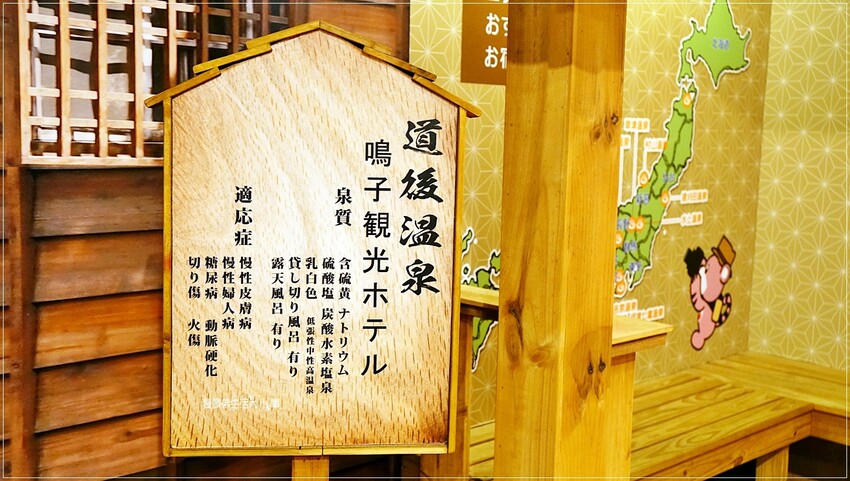 道後温泉
鳴子観光ホテル
泉質
含硫黄 ナトリウム
硫酸塩 炭酸水素塩泉
乳白色 低張性中性高温泉
貸し切り風呂 有り
露天風呂 有り
適応症
慢性皮膚病
慢性婦人病
糖尿病 動脈硬化
切り傷 火傷
おす
お宿
北海道